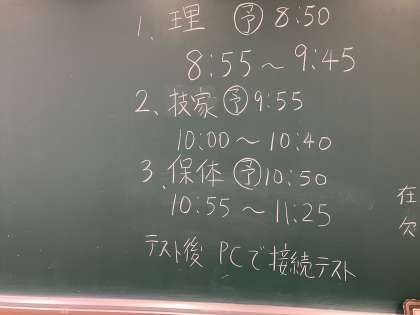 1、理 ㋵ 8:50
8:55〜9:45
2、技家 ㋵ 9:55
10:00〜10:40
3、保体 ㋵ 10:50
10:55〜11:25
テスト後 PCで接続テスト
在
欠